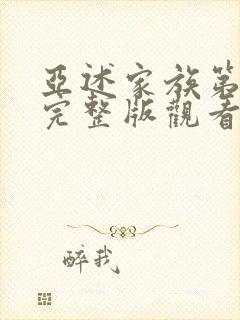 亞述家族第
完整版觀看
醉我